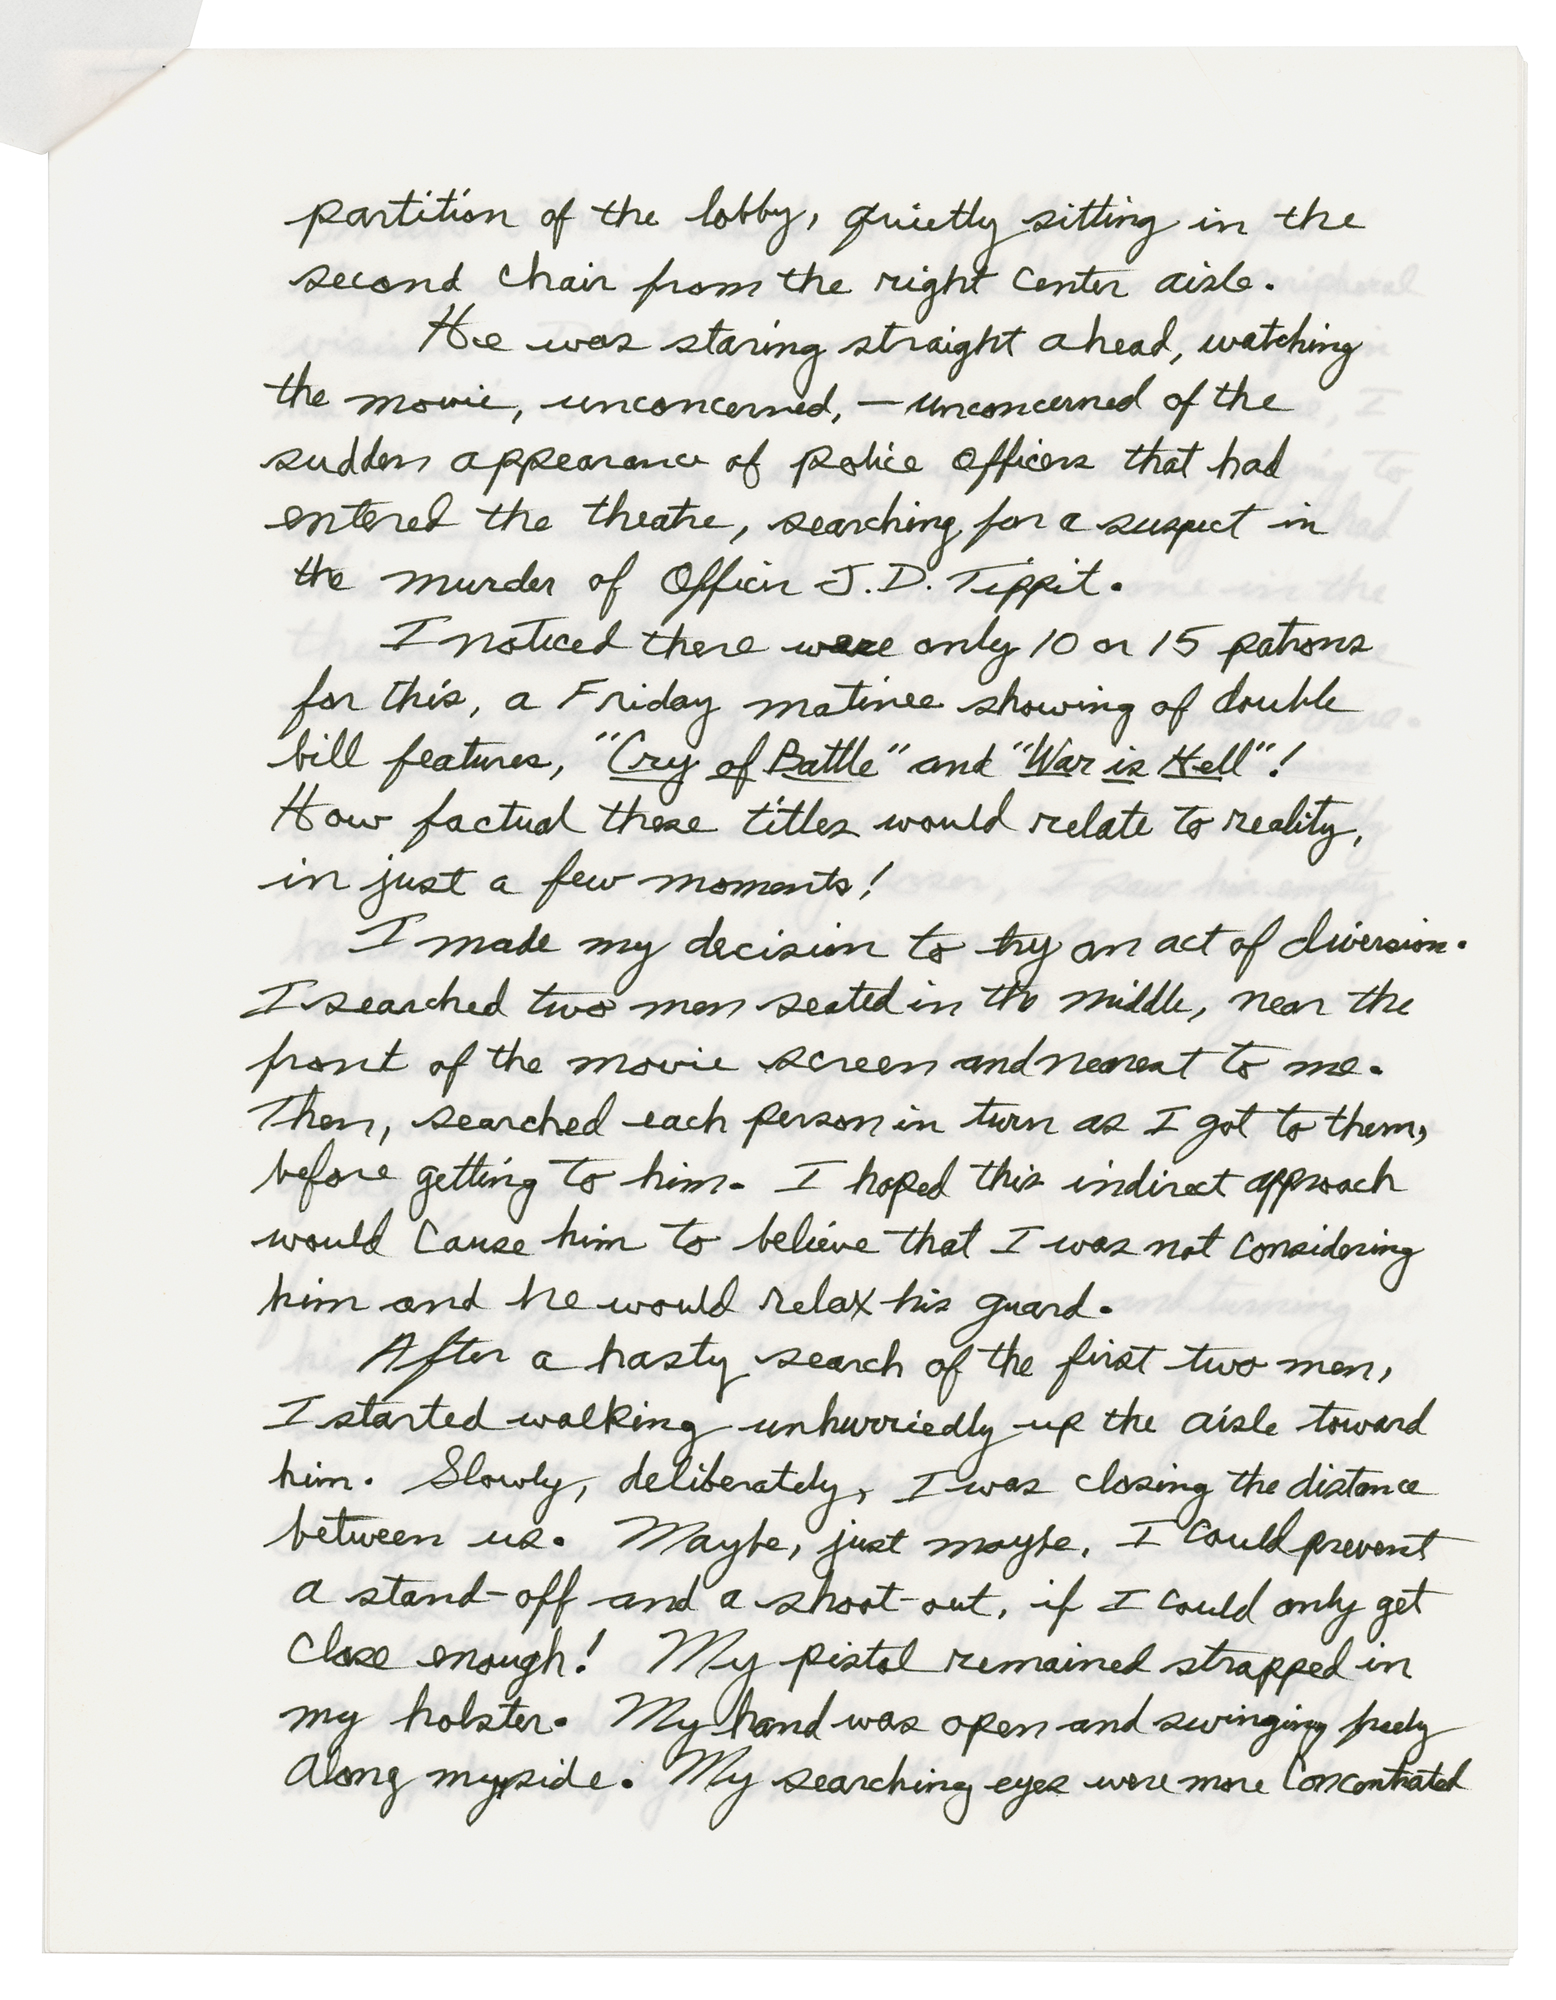 partition of the lobby, quietly sitting in the
second chair from the right center aisle.
He was staring straight ahead, watching
the movie, unconcerned, — unconcerned of the
sudden appearance of police officers that had
entered the theatre, searching for a suspect in
the murder of Officer J.D. Tippit.
I noticed there were only 10 or 15 patrons
for this, a Friday matinee showing of double
bill features, "Cry of Battle" and "War is Hell"!
How factual these titles would relate to reality,
in just a few moments!
I made my decision to try an act of diversion.
I searched two men seated in the middle, near the
front of the movie screen and nearest to me.
Then, searched each person in turn as I got to them,
before getting to him. I hoped this indirect approach
would cause him to believe that I was not considering
him and he would relax his guard.
After a hasty search of the first two men,
I started walking unhurriedly up the aisle toward
him. Slowly, deliberately, I was closing the distance
between us. Maybe, just maybe, I could prevent
a stand-off and a shoot-out, if I could only get
close enough! My pistol remained strapped in
my holster. My hand was open and swinging freely
along my side. My searching eyes were more concentrated